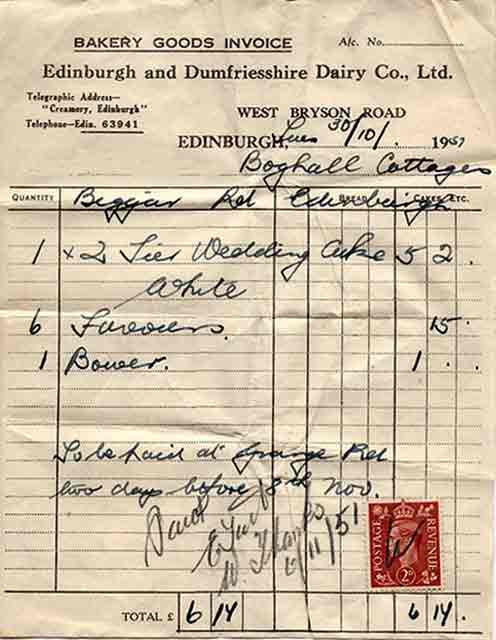 BAKERY GOODS INVOICE A/c. No.
Edinburgh and Dumfriesshire Dairy Co., Ltd.
Telegraphic Address—
"Creamery, Edinburgh"
Telephone—Edin. 63941
WEST BRYSON ROAD
EDINBURGH, Tues 30/10/ 1951
Boghall Cottages
QUANTITY Biggar Rd Edinburgh BREAD CAKES, ETC.
1 x 2 Tier Wedding Cake 5 2 .
White
6 Favours. 15 .
1 Bower. 1 . .
To be paid at Grange Rd
two days before 8th Nov.
Paid
W. Thanks
6/11/51
POSTAGE REVENUE
2D
TOTAL £ 6 14 6 14 .